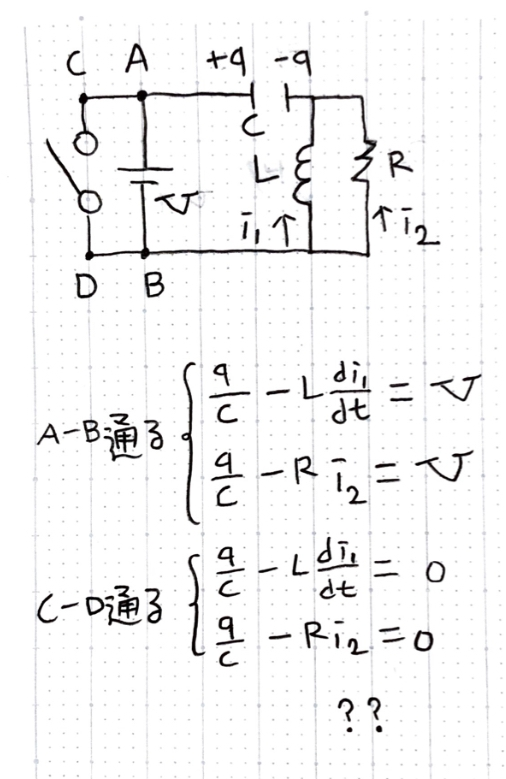 C A +q -q
C
V L R
i₁↑ ↑i₂
D B
A-B通る { q/C - L di₁/dt = V
q/C - R i₂ = V
C-D通る { q/C - L di₁/dt = 0
q/C - Ri₂ = 0
??